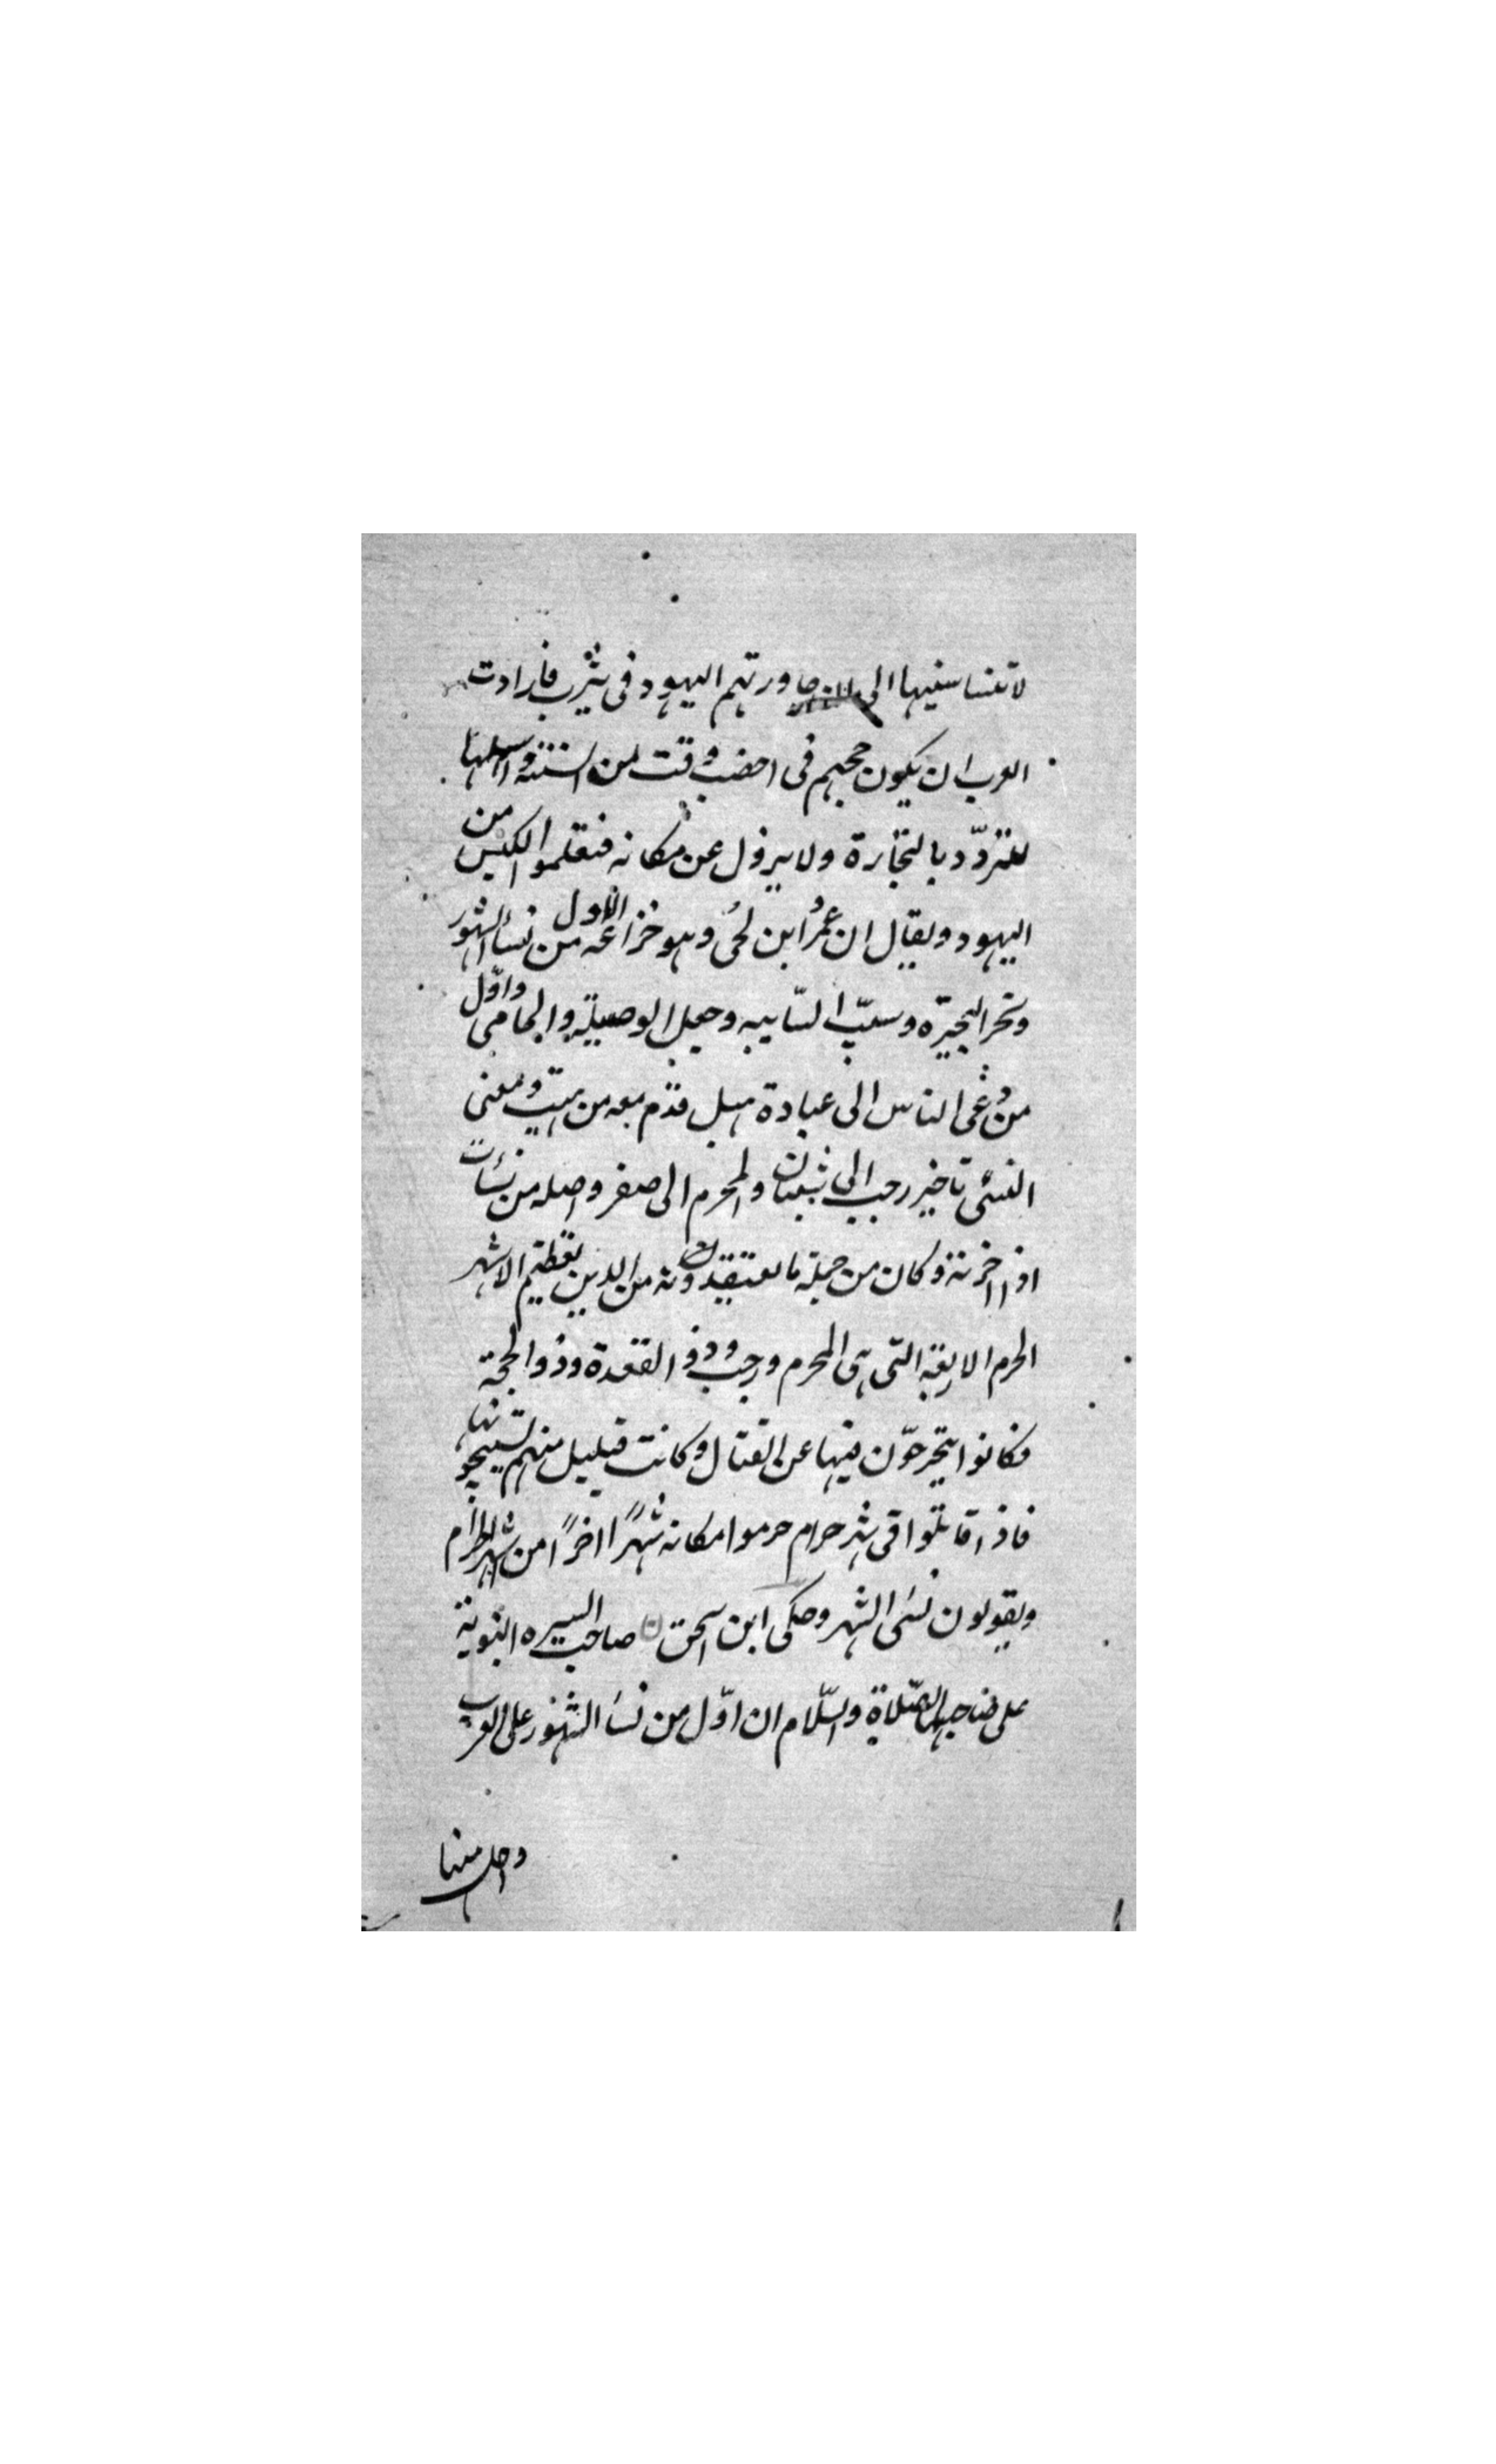 لا تنسا سنيها الى جاورتهم اليهود فى يثرب فارادت
العرب ان يكون حجهم فى اخصب وقت من السنة واسهلها
للتردّد بالتجارة ولا يزول عن مكانه فتعلموا الكبس من
اليهود ويقال ان عمرُ ابن لحىُ وهو خزاعه الاول من نسأ الشهور
وبحر البحيرة وسيّب السّايبه وجعل الوصيلة والحامى واوّل
من دُعى الناس الى عبادة هبل قدم بعه من هيت ومعنى
النسئى تاخير رجب الى شعبان والمحرم الى صفر واصله من نسأت
اذ اخرته وكان من جملة ما يعتقدونه من الدين تعظيم الاشهر
الحرم الاربعة التى هى المحرم ورجب وذو القعدة وذو الحجة
فكانوا يتحرجوّن فيها عن القتال وكانت قبليل منهم تستبيحونها
فاذ اقاتلوا فى شهر حرام حرموا مكانه شهرًا اخرًا من شهر الحرام
ويقولون نسئ الشهر وحكى ابن اسحق صاحب السيره النبوية
على صاحبها الصّلاة والسّلام ان اوّل من نسأ الشهور على العرب
واحل منها